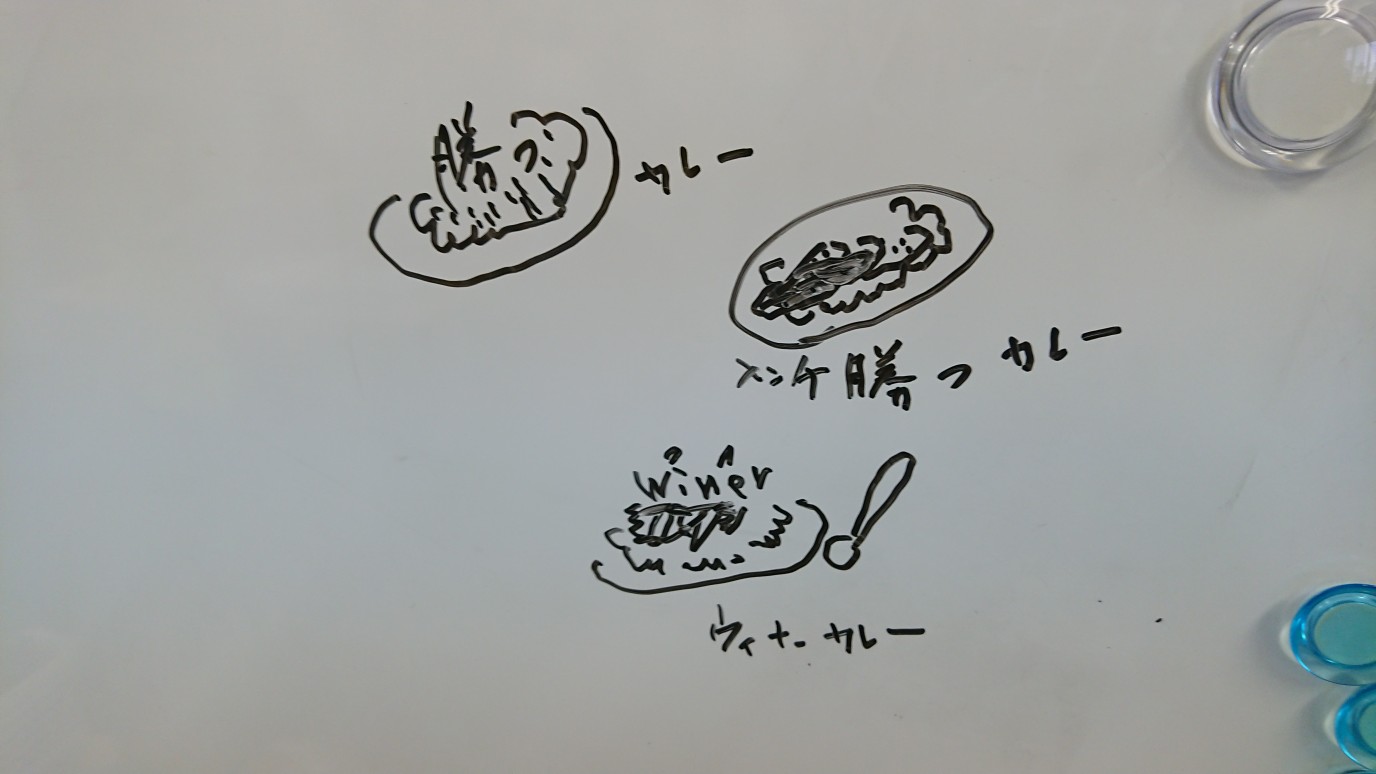 勝つ
カレー
メンチ勝つカレー
winer
ウィナーカレー